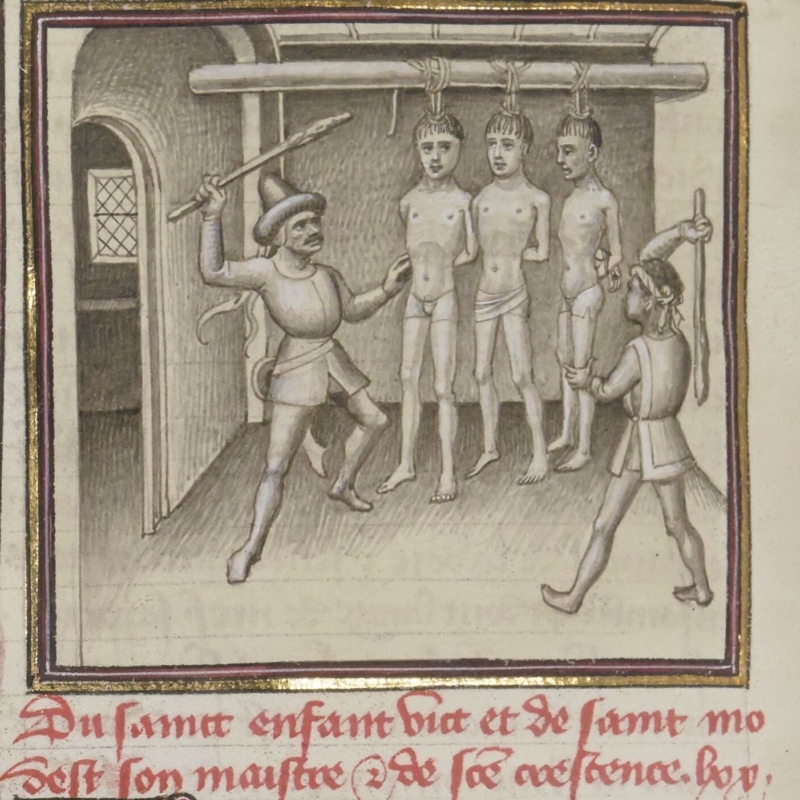 Du sainct enfant vict et de saint mo
dest son maistre ⁊ de scē crescence. lxv.